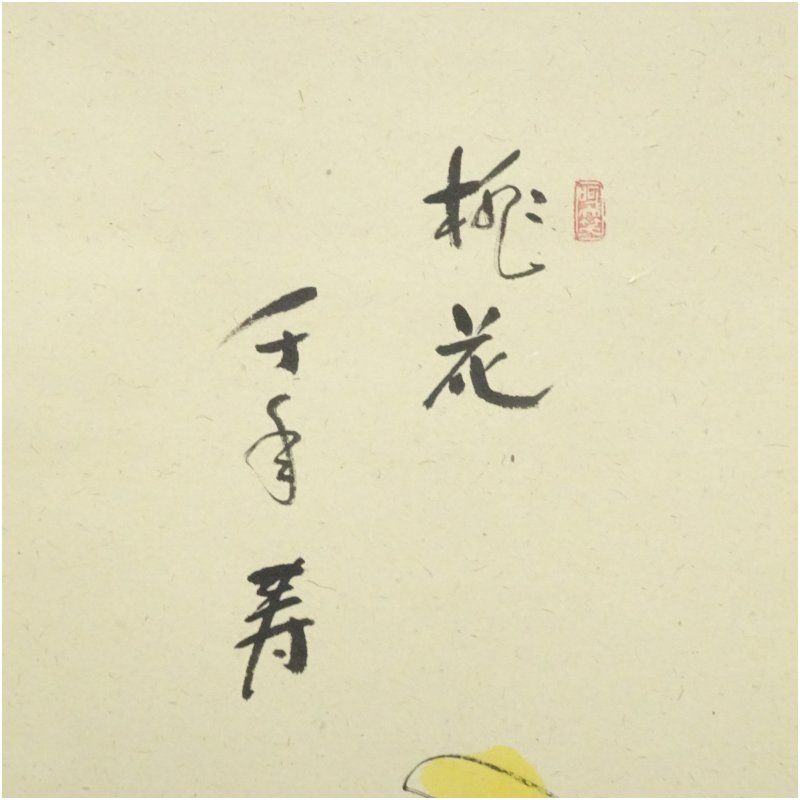 桃花
千年寿